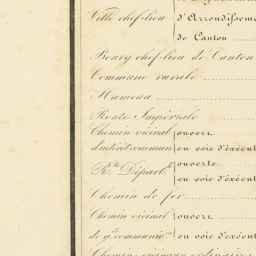 Ville chef-lieu d'Arrondisseme
de Canton
Bourg chef-lieu de Canton
Commune rurale
Hameau
Route Impériale
Chemin vicinal ouvert
d'intérêt commun ou voie d'exécut
Rte Départle ouverte
ou voie d'exécut
Chemin de fer
Chemin vicinal ouvert
de gde communic.on ou voie d'exécut